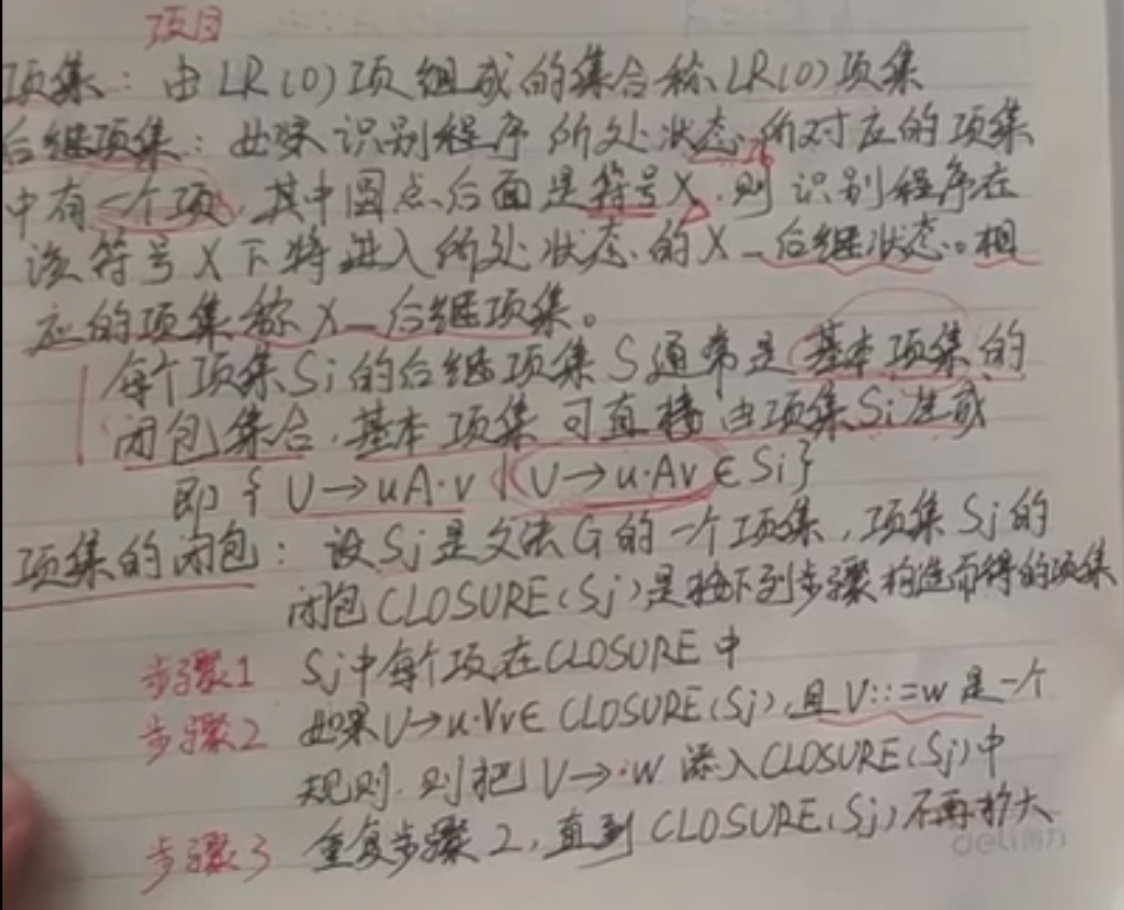 项目
项集：由LR(0)项组成的集合称LR(0)项集
后继项集：如果识别程序所处状态所对应的项集
中有一个项，其中圆点后面是符号X，则识别程序在
该符号X下将进入所处状态的X_后继状态。相
应的项集称X_后继项集。
每个项集Si的后继项集S通常是基本项集的
闭包集合，基本项集可直接由项集Si生成
即{U→uA·v|U→u·Av∈Si}
项集的闭包：设Sj是文法G的一个项集，项集Sj的
闭包CLOSURE(Sj)是按下列步骤构造而得的项集
步骤1 Sj中每个项在CLOSURE中
步骤2 如果U→u·Vv∈CLOSURE(Sj)，且V::=w是一个
规则，则把V→·w添入CLOSURE(Sj)中
步骤3 重复步骤2，直到CLOSURE(Sj)不再扩大
deli得力